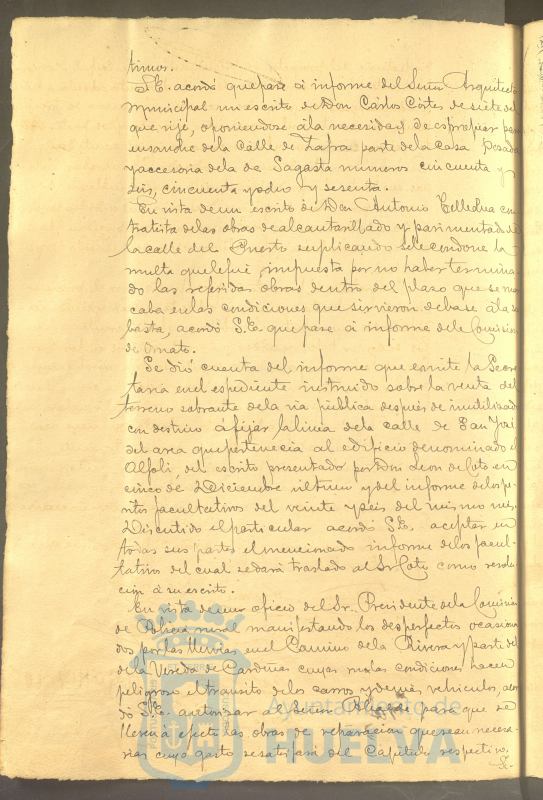 timos.
S.E. acordó que pase á informe del Señor Arquitecto
municipal un escrito de Don Carlos Cortes de siete del
que rije, oponiendose á la necesidad de espropiar para
ensanche de la Calle de Zafra parte de la casa Posada
y accesoria de la de Sagasta numeros cincuenta y
seis, cincuenta y ocho y sesenta.
En vista de un escrito de Don Antonio con
tratista de las obras de alcantarillado y pavimentado de
la calle del Puerto suplicando se le condone la
multa que le fué impuesta por no haber termina
do las referidas obras dentro del plazo que se mar
caba en las condiciones que sirvieron de base á la su
basta, acordó S.E. que pase á informe de la Comision
de Ornato.
Se dió cuenta del informe que emite la Secre
taria en el espediente instruido sobre la venta del
terreno sobrante de la via pública después de inutilizado
con destino á fijar la linea de la calle de San José
del area que pertenecia al edificio denominado el
Alfoli del escrito presentado por Don Leon de Coto en
cinco de Diciembre ultimo y del informe de los pe-
ritos facultativos del veinte y seis del mismo mes.
Discutido el particular acordó S.E. aceptar en
todas sus partes el mencionado informe de los facul-
tativos del cual se dará traslado al Sr Coto como resolu-
cion á su escrito.
En vista de un oficio del Sr. Presidente de la Comision
de Policia rural manifestando los desperfectos ocasiona
dos por las lluvias en el Camino de la Rivera y parte del
de la Vereda de Cardeñas cuyas malas condiciones hacen
peligroso el transito de los carros y demás vehiculos, acor
dó S.E. autorizar al Señor Alcalde para que se
lleven á efecto las obras de reparacion que sean necesa-
rias cuyo gasto se satisfará del Capitulo respectivo.
Se
Ayuntamiento de
HUELVA